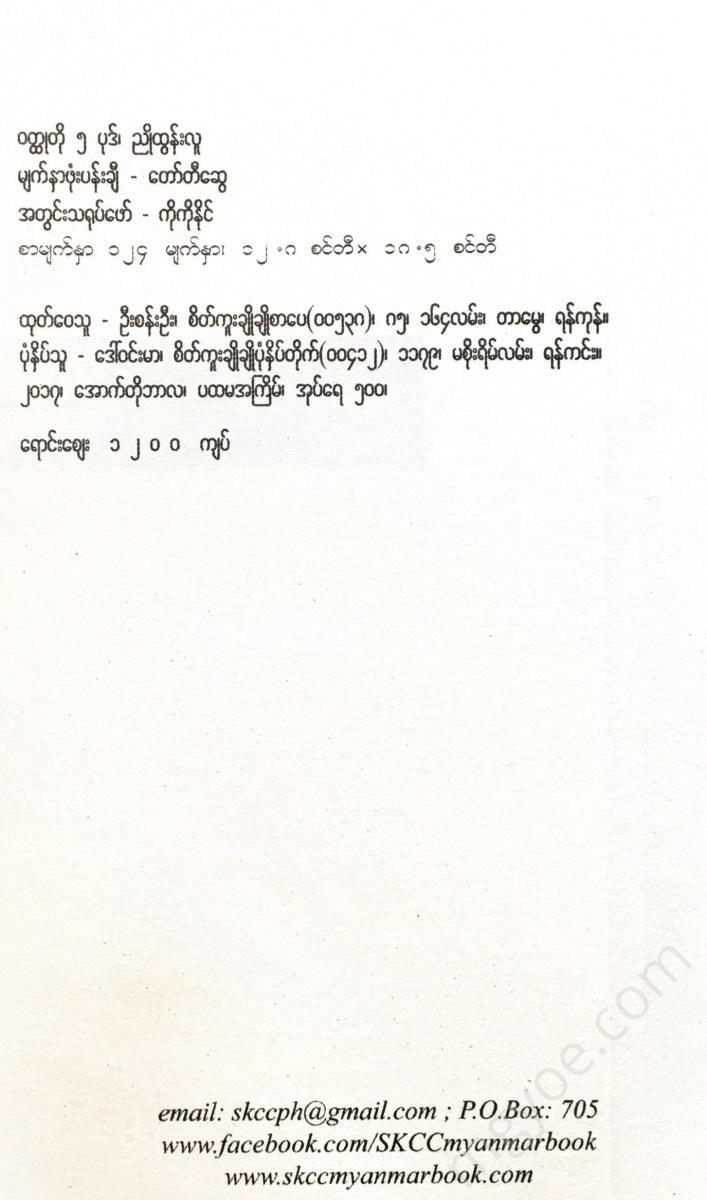 ဝတ္ထုတို ၅ ပုဒ်၊ ညိုထွန်းလူ
မျက်နှာဖုံးပန်းချီ - တော်တီဆွေ
အတွင်းသရုပ်ဖော် - ကိုကိုနိုင်
စာမျက်နှာ ၁၂၄ မျက်နှာ၊ ၁၂.၈ စင်တီ x ၁၈.၅ စင်တီ
ထုတ်ဝေသူ - ဦးစန်းဦး၊ စိတ်ကူးချိုချိုစာပေ(၀၀၅၃၈)၊ ၈၅၊ ၁၆၄လမ်း၊ တာမွေ၊ ရန်ကုန်။
ပုံနှိပ်သူ - ဒေါ်ဝင်းမာ၊ စိတ်ကူးချိုချိုပုံနှိပ်တိုက်(၀၀၄၁၂)၊ ၁၁၇၉၊ မစိုးရိမ်လမ်း၊ ရန်ကင်း။
၂၀၁၇၊ အောက်တိုဘာလ၊ ပထမအကြိမ်၊ အုပ်ရေ ၅၀၀၊
ရောင်းဈေး ၁ ၂ ၀ ၀ ကျပ်
email: skccph@gmail.com ; P.O.Box: 705
www.facebook.com/SKCCmyanmarbook
www.skccmyanmarbook.com